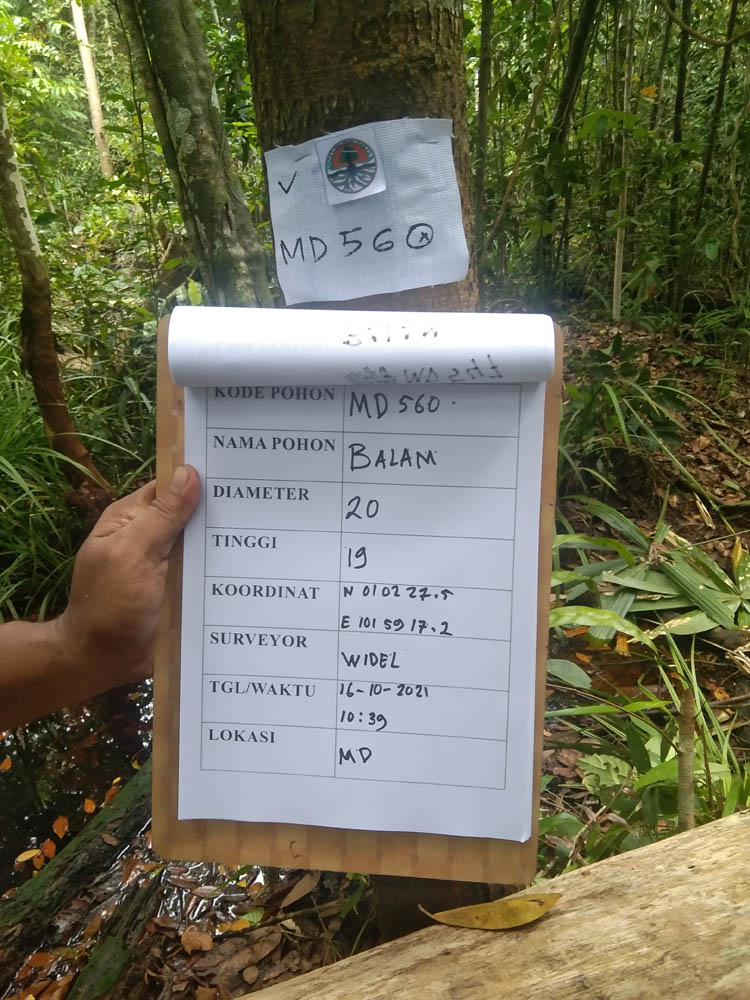 ✓
MD 560
KODE POHON MD 560.
NAMA POHON BALAM
DIAMETER 20
TINGGI 19
KOORDINAT N 01 02 27.5
E 101 59 17.2
SURVEYOR WIDEL
TGL/WAKTU 16-10-2021
10:39
LOKASI MD